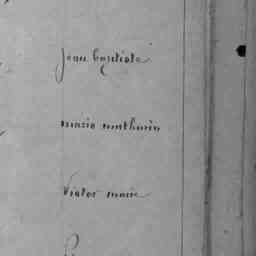 jean baptiste
marie mathurin
Victor marie